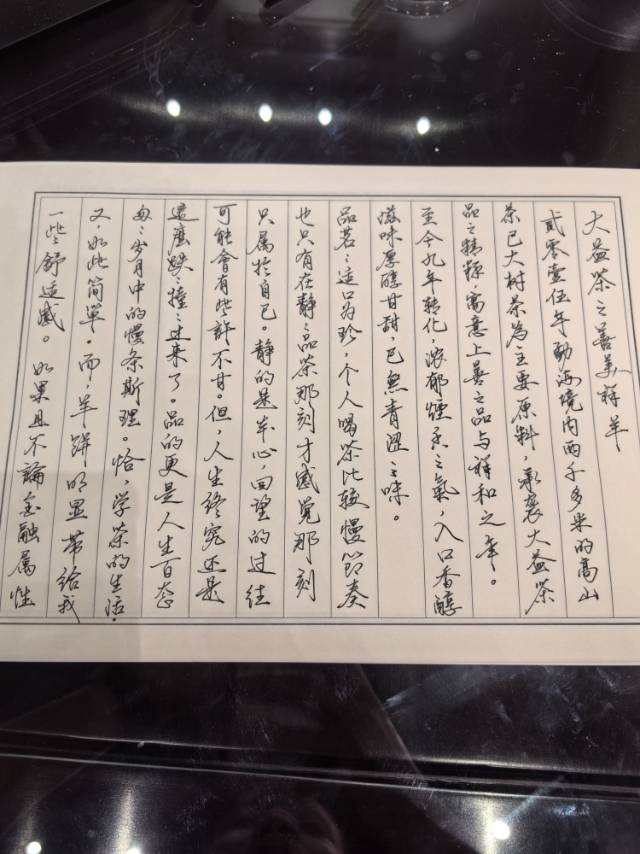 大益茶之善美祥羊
貳零壹伍年勐海境内两千多米的高山
茶已大树茶為主要原料，承袭大益茶
品之精髓，寓意上善之品与祥和之年。
至今九年转化，浓郁烟香之氣，入口香醇
滋味厚醇甘甜，已無青涩之味。
品茗：适口为珍，个人喝茶比较慢節奏
也只有在静之品茶那刻才感觉那刻
只属於自己。静的是羊心，回望的过往
可能会有些許不甘。但，人生终究还是
這麼跌撞之过来了。品的更是人生百态
每：岁月中的慢条斯理。恰，学茶的生活，
又，如此简單。而，羊餅明显带给我
一些舒适感。如果且不論金融属性